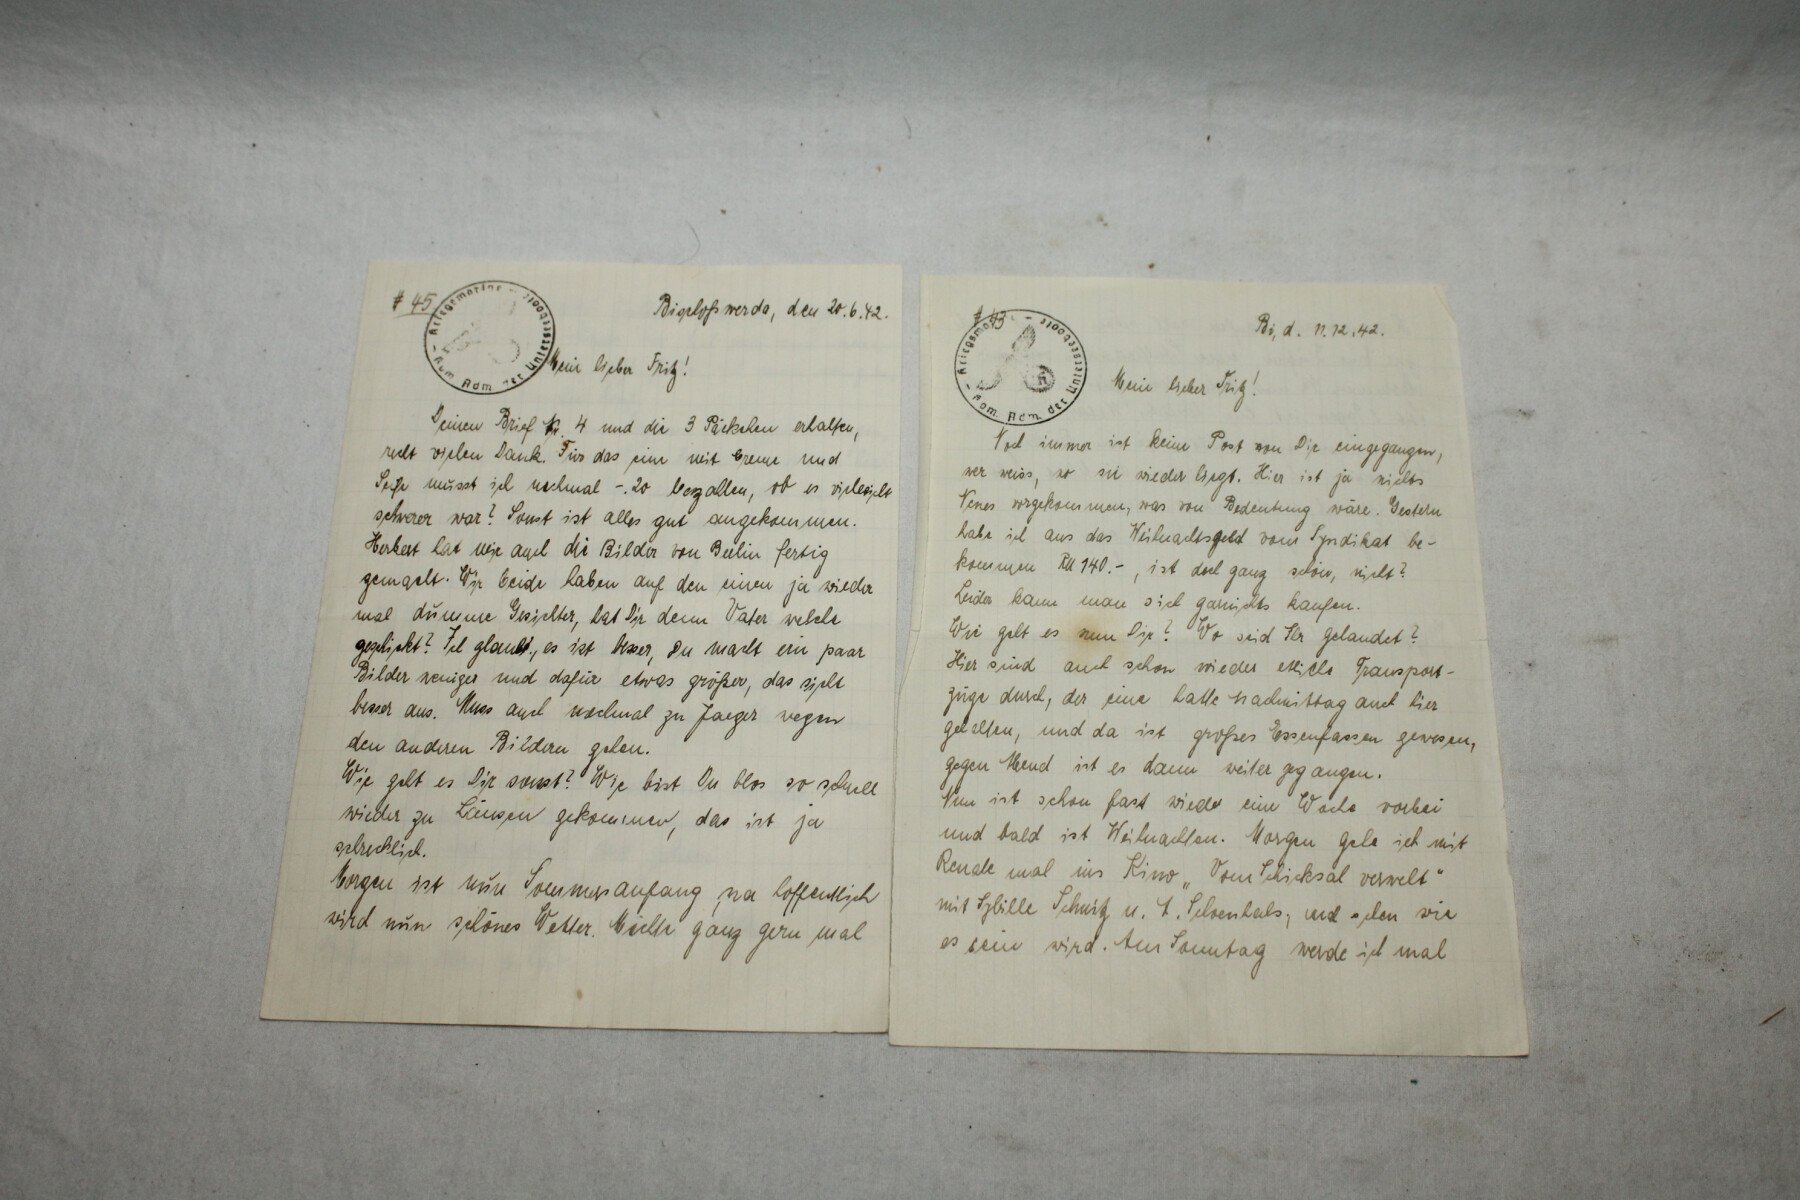 # 45
Kriegsmarine - Unterseeboote - Kom. Adm. der
Bischofswerda, den 20.6.42.
Mein lieber Fritz!
Deinen Brief Nr. 4 und die 3 Päckchen erhalten,
recht vielen Dank. Für das eine mit Creme und
Seife musst ich nochmal -.20 bezahlen, ob es vielleicht
schwerer war? Sonst ist alles gut angekommen.
Herbert hat mir auch die Bilder von Berlin fertig
gemacht. Wir beide haben auf den einen ja wieder
mal dumme Gesichter, hat Dir denn Vater welche
geschickt? Ich glaube, es ist besser, Du machst ein paar
Bilder weniger und dafür etwas größer, das sieht
besser aus. Muss auch nochmal zu Jaeger wegen
den anderen Bildern gehen.
Wie geht es Dir sonst? Wie bist Du blos so schnell
wieder zu Läusen gekommen, das ist ja
schrecklich.
Morgen ist nun Sommersanfang, na hoffentlich
wird nun schönes Wetter. Möchte ganz gern mal
# 43
Kriegsmarine - Unterseeboote - Kom. Adm. der
Bi, d. 11.12.42.
Mein lieber Fritz!
Noch immer ist keine Post von Dir eingegangen,
wer weiss, wo sie wieder liegt. Hier ist ja nichts
Neues vorgekommen, was von Bedeutung wäre. Gestern
habe ich aus das Weihnachtsgeld vom Syndikat be-
kommen RM 140.-, ist doch ganz schön, nicht?
Leider kann man sich garnichts kaufen.
Wie geht es nun Dir? Wo seid Ihr gelandet?
Hier sind auch schon wieder etliche Transport-
züge durch, der eine hatte nachmittag auch hier
gehalten, und da ist großes Essenfassen gewesen,
gegen Abend ist es dann weiter gegangen.
Nun ist schon fast wieder eine Woche vorbei
und bald ist Weihnachten. Morgen gehe ich mit
Renate mal ins Kino „Vom Schicksal verweht"
mit Sybille Schmitz u. A. Schoenhals, und sehen wie
es sein wird. Am Sonntag werde ich mal